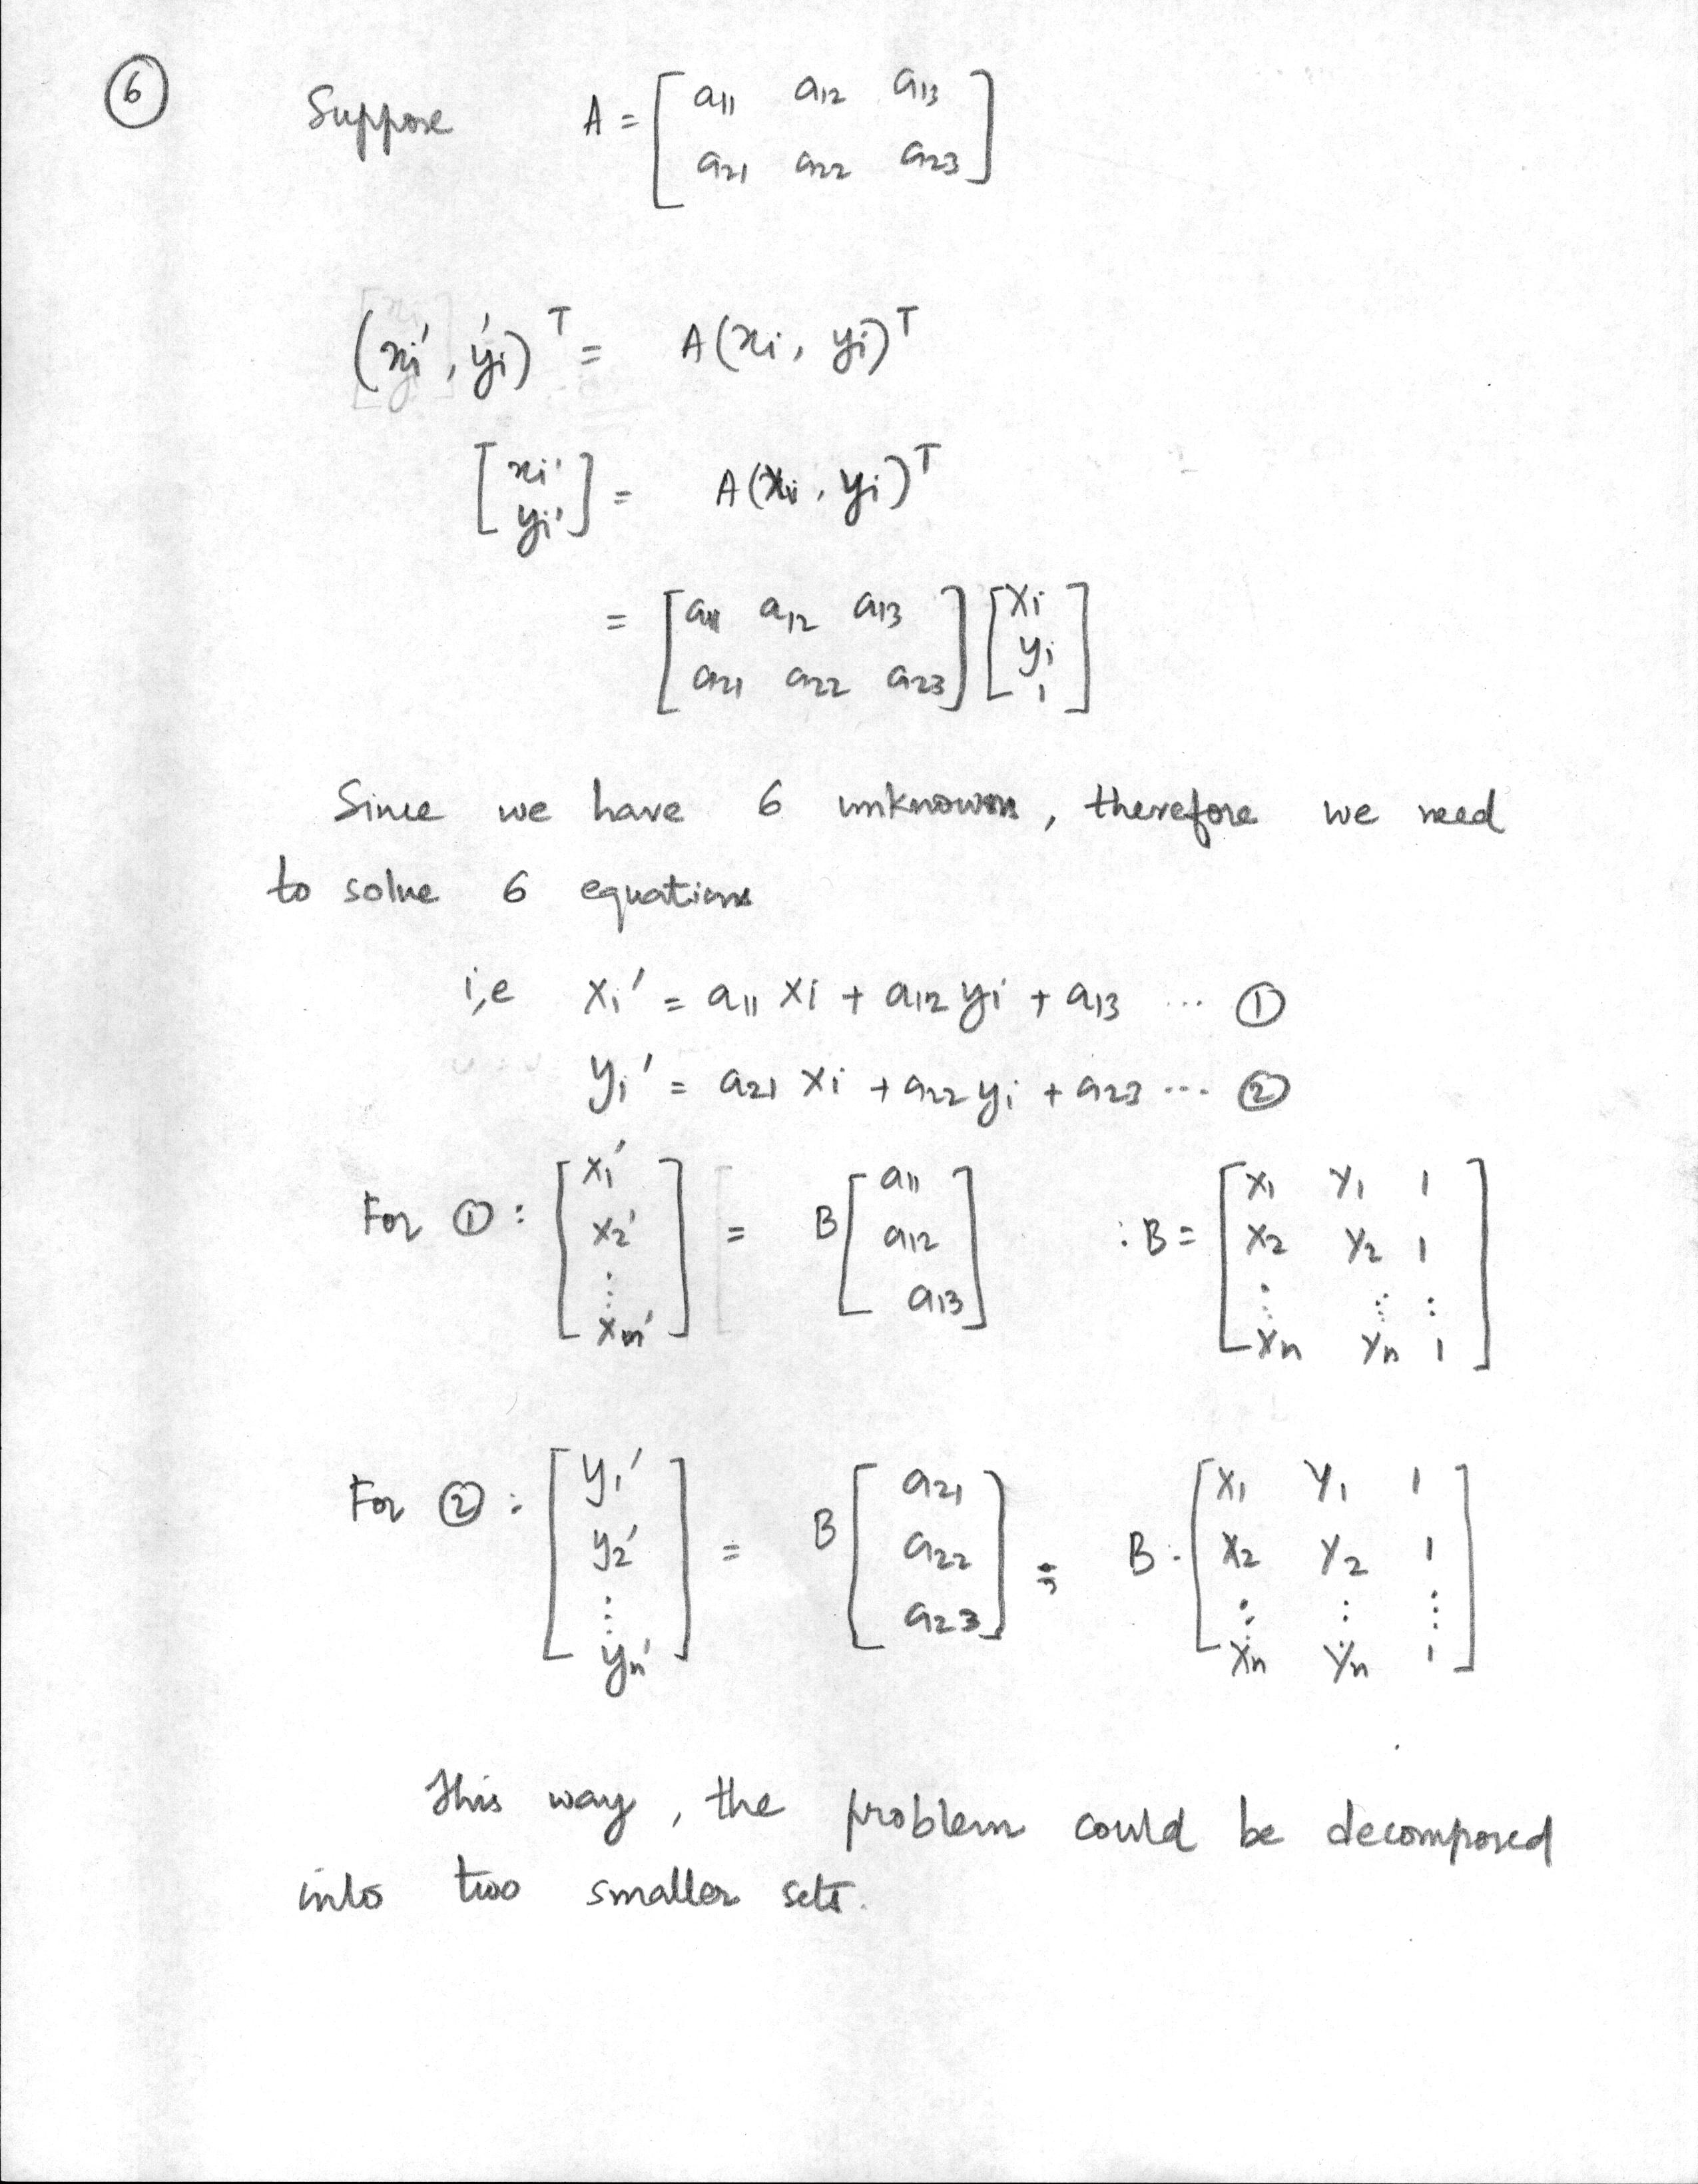 6
Suppose A = [ a11 a12 a13
a21 a22 a23 ]
(xi', yi')^T = A(xi, yi)^T
[ xi'
yi' ] = A(xi, yi)^T
= [ a11 a12 a13
a21 a22 a23 ] [ xi
yi
1 ]
Since we have 6 unknowns, therefore we need
to solve 6 equations
i,e xi' = a11 xi + a12 yi + a13 ... ①
yi' = a21 xi + a22 yi + a23 ... ②
For ①: [ x1' x2' ⋮ xn' ] = B [ a11 a12 a13 ] : B = [ x1 y1 1
x2 y2 1
⋮ ⋮ ⋮
xn yn 1 ]
For ②: [ y1' y2' ⋮ yn' ] = B [ a21 a22 a23 ] ; B = [ x1 y1 1
x2 y2 1
⋮ ⋮ ⋮
xn yn 1 ]
This way, the problem could be decomposed
into two smaller sets.